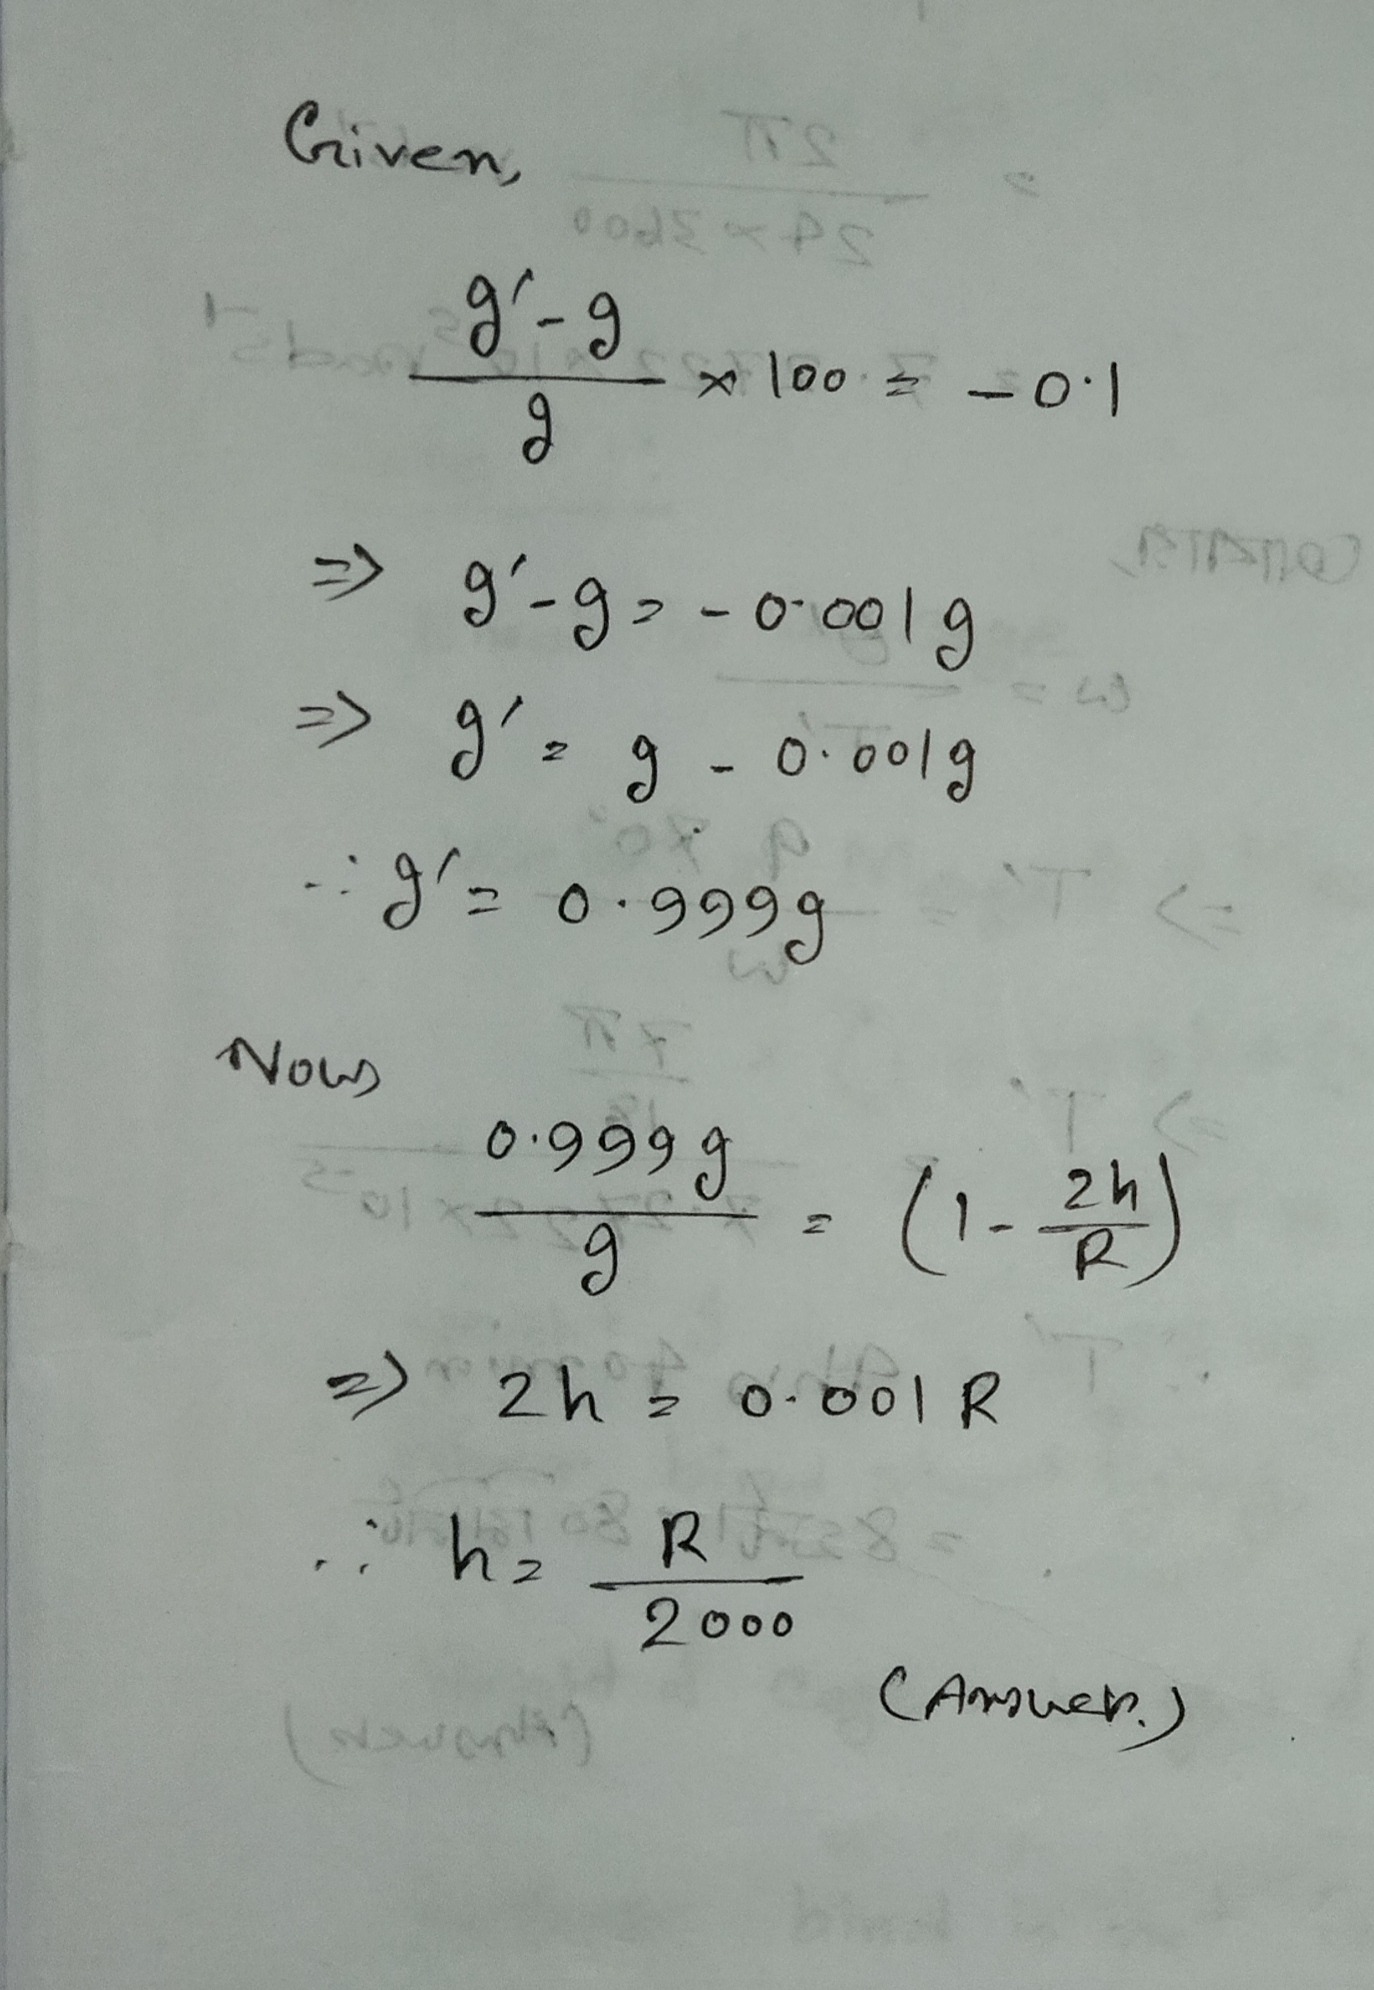 Given,
(g′ - g)/g × 100 = -0.1
=> g′ - g = -0.001g
=> g′ = g - 0.001g
∴ g′ = 0.999g
Now
0.999g/g = (1 - 2h/R)
=> 2h = 0.001R
∴ h = R/2000
(Answer.)